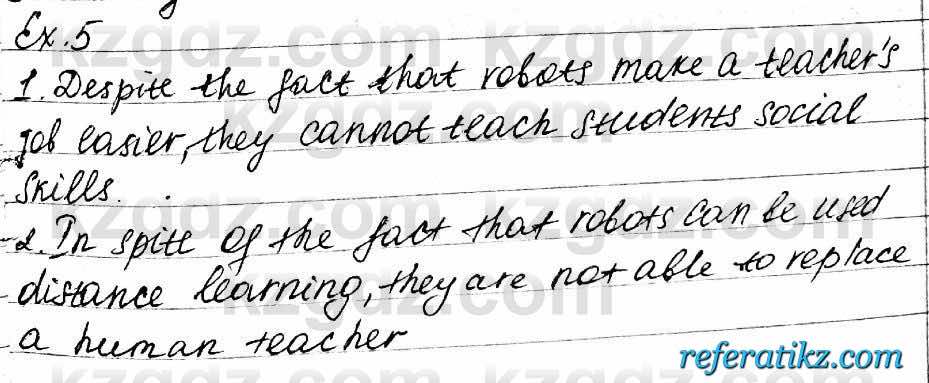 Ex.5
1. Despite the fact that robots make a teacher's
job easier, they cannot teach students social
skills.
2. In spite of the fact that robots can be used
distance learning, they are not able to replace
a human teacher
referatikz.com